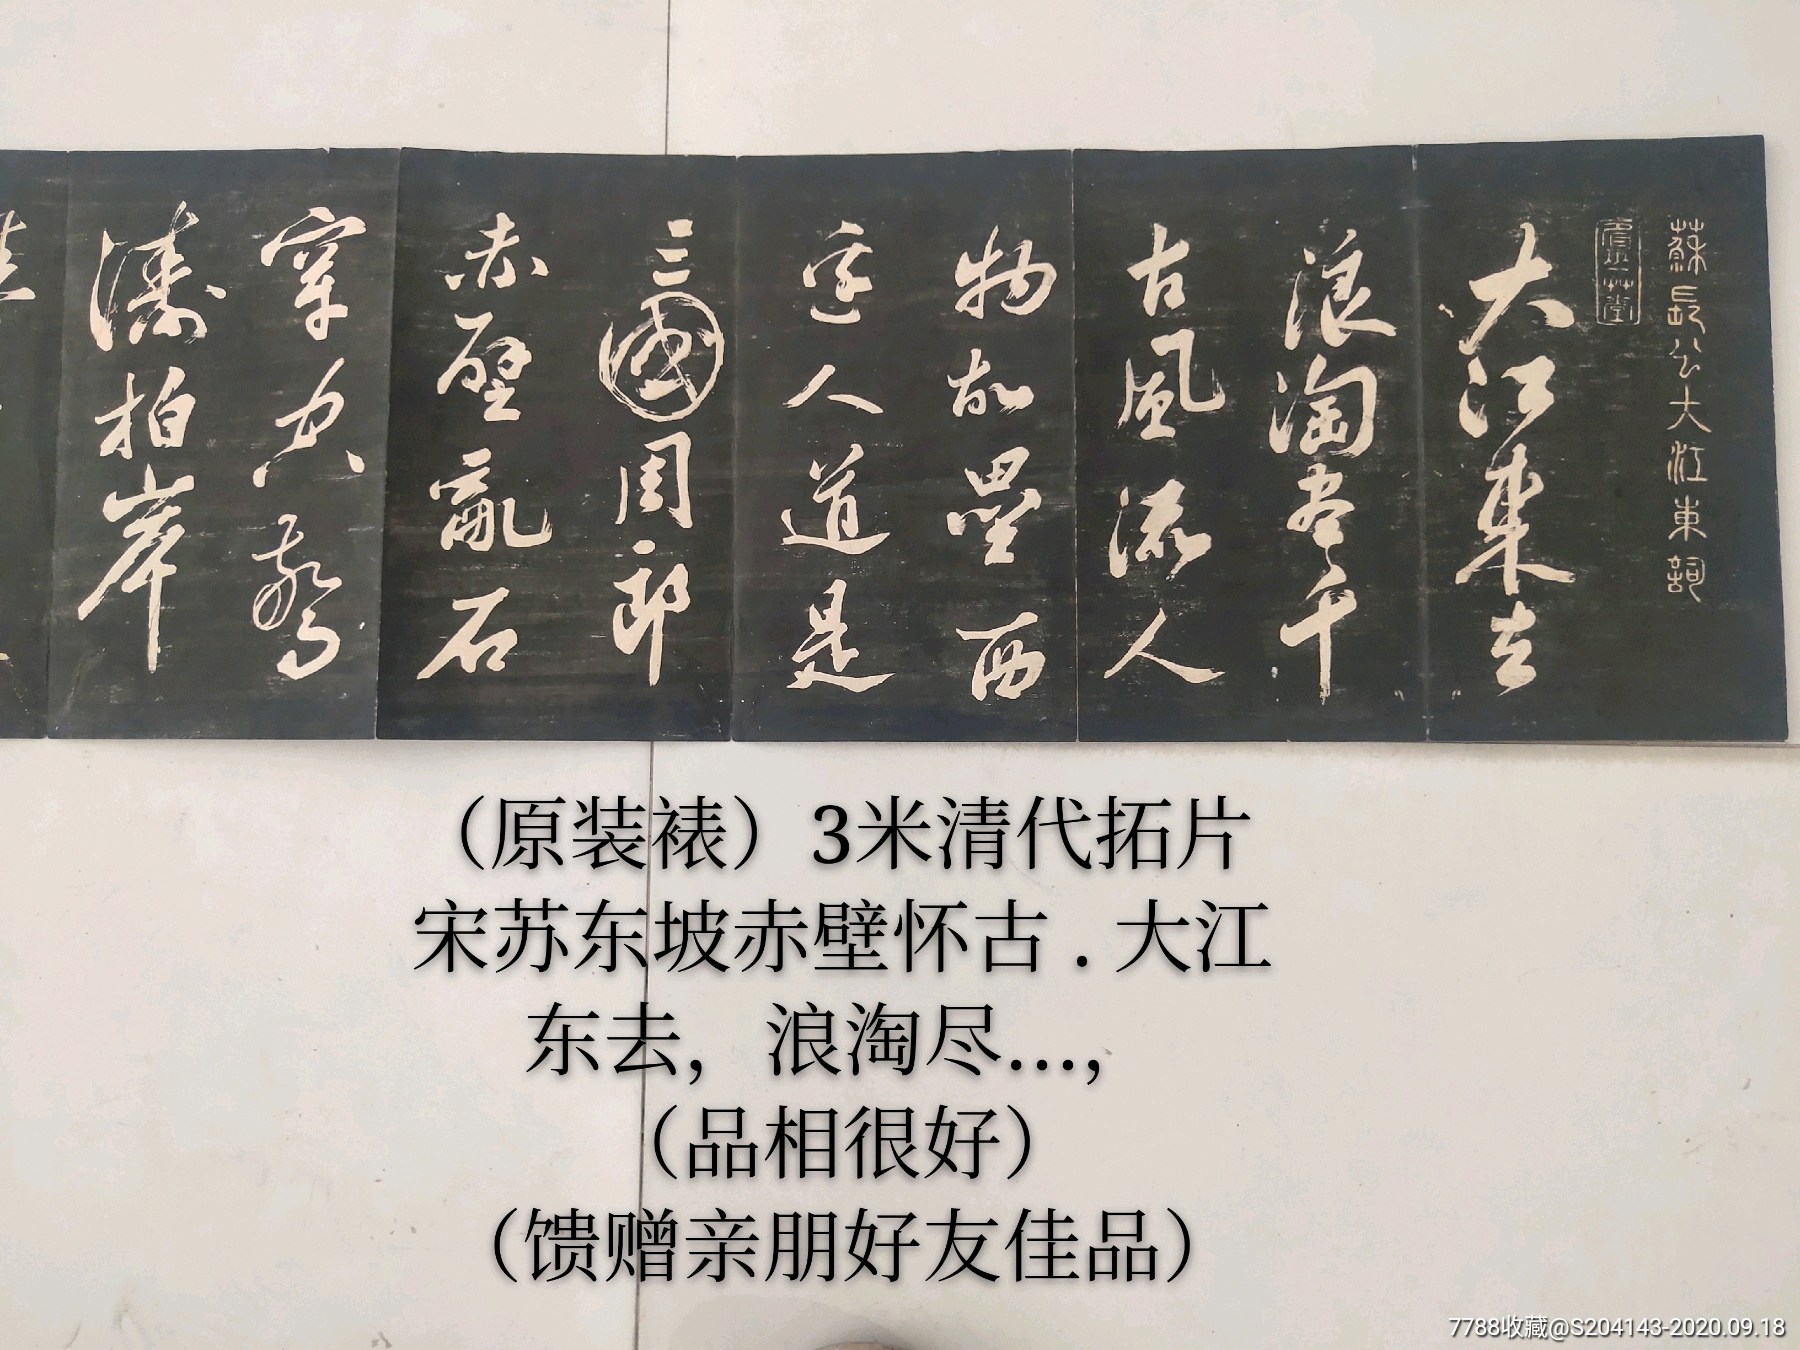 蘇長公大江東詞
大江東去
浪淘盡千
古風流人
物故壘西
邊人道是
三國周郎
赤壁亂石
穿空驚
濤拍岸
（原装裱）3米清代拓片
宋苏东坡赤壁怀古．大江
东去，浪淘尽…，
（品相很好）
（馈赠亲朋好友佳品）
7788收藏@S204143-2020.09.18